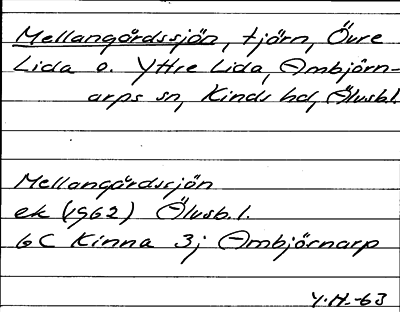 Mellangårdssjön, tjärn, Övre
Lida o. Yttre Lida, Ambjörn-
arps sn, Kinds hd, Älvsb.l.
Mellangårdssjön
ek (1962) Älvsb.l.
6C Kinna 3j Ambjörnarp
Y.H.-63